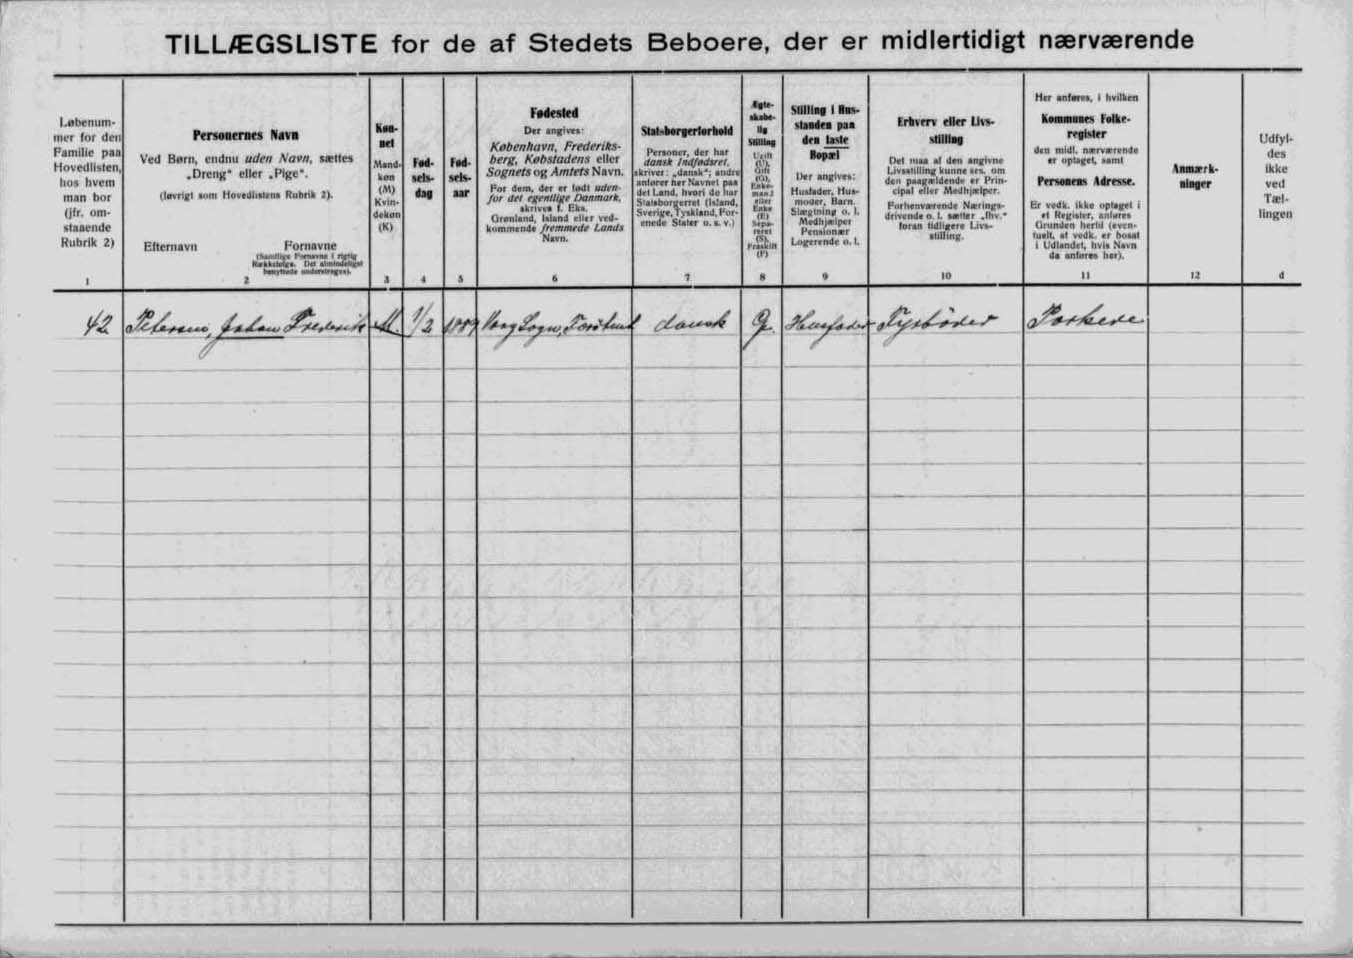 TILLÆGSLISTE for de af Stedets Beboere, der er midlertidigt nærværende
Løbenum-
mer for den
Familie paa
Hovedlisten,
hos hvem
man bor
(jfr. om-
staaende
Rubrik 2)
1
Personernes Navn
Ved Børn, endnu uden Navn, sættes
„Dreng“ eller „Pige“.
(Iøvrigt som Hovedlistens Rubrik 2).
Efternavn Fornavne
(Samtlige Fornavne i rigtig
Rækkefølge. Det almindeligst
benyttede understreges).
2
Køn-
net
Mand-
køn
(M)
Kvin-
dekøn
(K)
3
Fød-
sels-
dag
4
Fød-
sels-
aar
5
Fødested
Der angives:
København, Frederiks-
berg, Købstadens eller
Sognets og Amtets Navn.
For dem, der er født uden-
for det egentlige Danmark,
skrives f. Eks.
Grønland, Island eller ved-
kommende fremmede Lands
Navn.
6
Statsborgerforhold
Personer, der har
dansk Indfødsret,
skriver: „dansk“; andre
anfører her Navnet paa
det Land, hvori de har
Statsborgerret (Island,
Sverige, Tyskland, For-
enede Stater o. s. v.)
7
Ægte-
skabe-
lig
Stilling
Ugift
(U),
Gift
(G),
Enke-
mand
eller
Enke
(E)
Sepa-
reret
(S),
Fraskilt
(F)
8
Stilling i Hus-
standen paa
den faste
Bopæl
Der angives:
Husfader, Hus-
moder, Barn,
Slægtning o. l.
Medhjælper
Pensionær
Logerende o. l.
9
Erhverv eller Livs-
stilling
Det maa af den angivne
Livsstilling kunne ses, om
den paagældende er Prin-
cipal eller Medhjælper.
Forhenværende Nærings-
drivende o. l. sætter „fhv.“
foran tidligere Livs-
stilling.
10
Her anføres, i hvilken
Kommunes Folke-
register
den midl. nærværende
er optaget, samt
Personens Adresse.
Er vedk. ikke optaget i
et Register, anføres
Grunden hertil (even-
tuelt, at vedk. er bosat
i Udlandet, hvis Navn
da anføres her).
11
Anmærk-
ninger
12
Udfyl-
des
ikke
ved
Tæl-
lingen
d
42 Petersen, Johan Frederik M. 1/2 1889 Vaag Sogn, Færø Amt dansk G. Husfader Fyrbøder Porkere